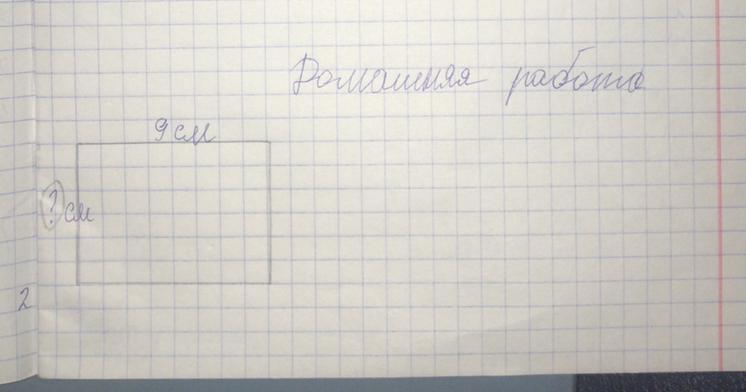 Домашняя работа
9 см
? см
2